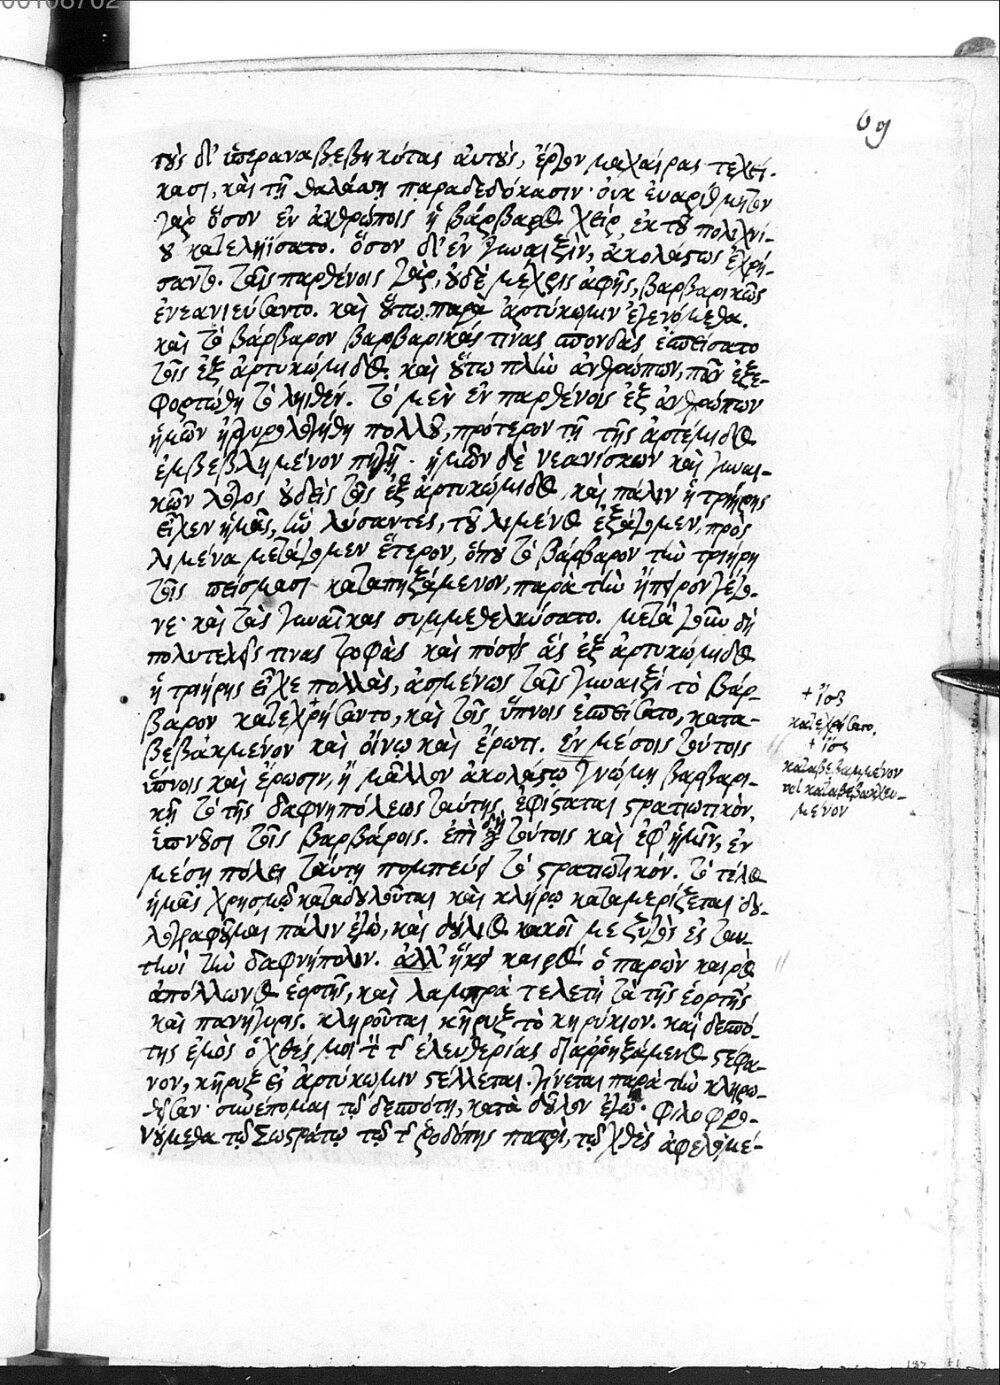 00108702
69
τοὺς δ' ὑπεραναβεβηκότας αὐτοὺς, ἔργον μαχαίρας τεχεί-
κασι, καὶ τῇ θαλάσσῃ παραδεδώκασιν· οὐκ ἐναρίθμητον
γὰρ ὅσον ἐν ἀνθρώποις ἡ βάρβαρος χεὶρ, ἐκ τοῦ πολιχνί-
ου κατεληΐσατο. ὅσον δ' ἐν γυναιξὶν, ἀκολάστως ἐχρή-
σαντο. ταῖς παρθένοις γὰρ, οὐδὲ μέχρις ἁφῆς, βαρβαρικῶς
ἐνεανιεύσαντο. καὶ οὕτω παρὰ ἀρτύκωμιν ἐγενόμεθα.
καὶ τὸ βάρβαρον βαρβαρικάς τινας σπονδὰς ἐσπείσατο
τοῖς ἐξ ἀρτυκώμιδος. καὶ οὕτω πλὴν ἀνθρώπων, πᾶν ἐξε-
φορτώθη τὸ ληϊσθέν. τὸ μὲν ἐν παρθένοις ἐξ ἀνθρώπων
ἡμῶν ἠργυρολογήθη πολλοῦ, πρότερον τῇ τῆς ἀρτέμιδος
ἐμβεβλημένον πηγῇ. ἡμῶν δὲ νεανίσκων καὶ γυναι-
κῶν λόγος οὐδεὶς τοῖς ἐξ ἀρτυκώμιδος, καὶ πάλιν ἡ τριήρης
εἶχεν ἡμᾶς, ἣν λύσαντες, τοῦ λιμένος ἐξάγομεν, πρὸς
λιμένα μετάγομεν ἕτερον, ὅπου τὸ βάρβαρον τὴν τριήρη
τοῖς πείσμασι καταπηξάμενον, παρὰ τὴν ἤπειρον γέγο-
νε· καὶ τὰς γυναῖκας συμμεθελκύσατο. μετὰ γοῦν δὴ
πολυτελεῖς τινας τροφὰς καὶ πόσεις ἃς ἐξ ἀρτυκώμιδος
ἡ τριήρης εἶχε πολλὰς, ἀσμένως ταῖς γυναιξὶ τὸ βάρ-
βαρον κατεχρήσαντο, καὶ τοῖς ὕπνοις ἐσπείσατο, κατα-
βεβακμένον καὶ οἴνω καὶ ἔρωτι. ἐν μέσοις τούτοις
ὕπνοις καὶ ἔρωσιν, ἢ μᾶλλον ἀκολάστῳ γνώμῃ βαρβαρι-
κῇ τὸ τῆς δαφνηπόλεως ταύτης, ἐφίσταται στρατιωτικὸν,
ὑπνοῦσι τοῖς βαρβάροις. ἐπὶ δὴ τούτοις καὶ ἐφ' ἡμῖν, ἐν
μέσῃ πόλει ταύτῃ πομπεύει τὸ στρατιωτικόν. τὸ τέλος
ἡμᾶς χρησμῷ καταδουλοῦται καὶ κλήρῳ καταμερίζεται δου-
λογραφοῦμαι πάλιν ἐγὼ, καὶ δούλιος κακοῖ με ζυγὸς ἐς ταύ-
την τὴν δαφνήπολιν. ἀλλ' ἧκε καιρὸς ὁ παρὼν καιρὸς
ἀπόλλωνος ἑορτῆς, καὶ λαμπρὰ τελετὴ τὰ τῆς ἑορτῆς
καὶ πανήγυρις. κληροῦται κῆρυξ τὸ κηρύκιον. καὶ δεσπό-
της ἐμὸς ὁ χθές μοι τὸν τῆς ἐλευθερίας διαρρηξάμενος στέφα-
νον, κῆρυξ εἰς ἀρτύκωμιν στέλλεται. γίνεται παρὰ τὴν κληρω-
θεῖσαν· συνέπομαι τῷ δεσπότῃ, κατὰ δοῦλον ἐγώ. φιλοφρο-
νούμεθα τῷ Σωστράτῳ τῷ τῆς ῥοδόπης πατρὶ, τῷ χθὲς ἀφελομέ-
+ ἴσως
κατεχρήσατο.
+ ἴσως
καταβεβαμμένον
καταβεβακχευ-
μένον